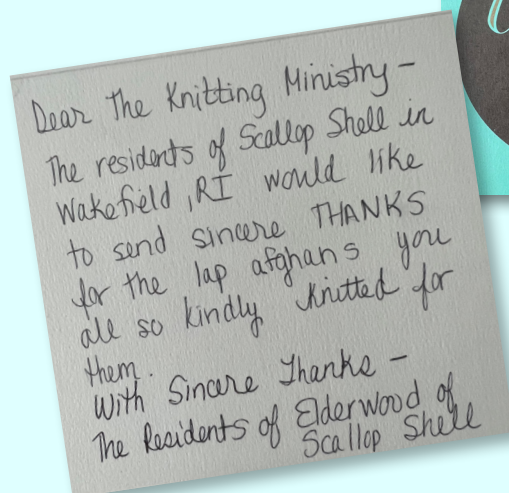 Dear The Knitting Ministry –
The residents of Scallop Shell in
Wakefield, RI would like
to send sincere THANKS
for the lap afghans you
all so kindly knitted for
them.
With Sincere Thanks –
The Residents of Elderwood of
Scallop Shell